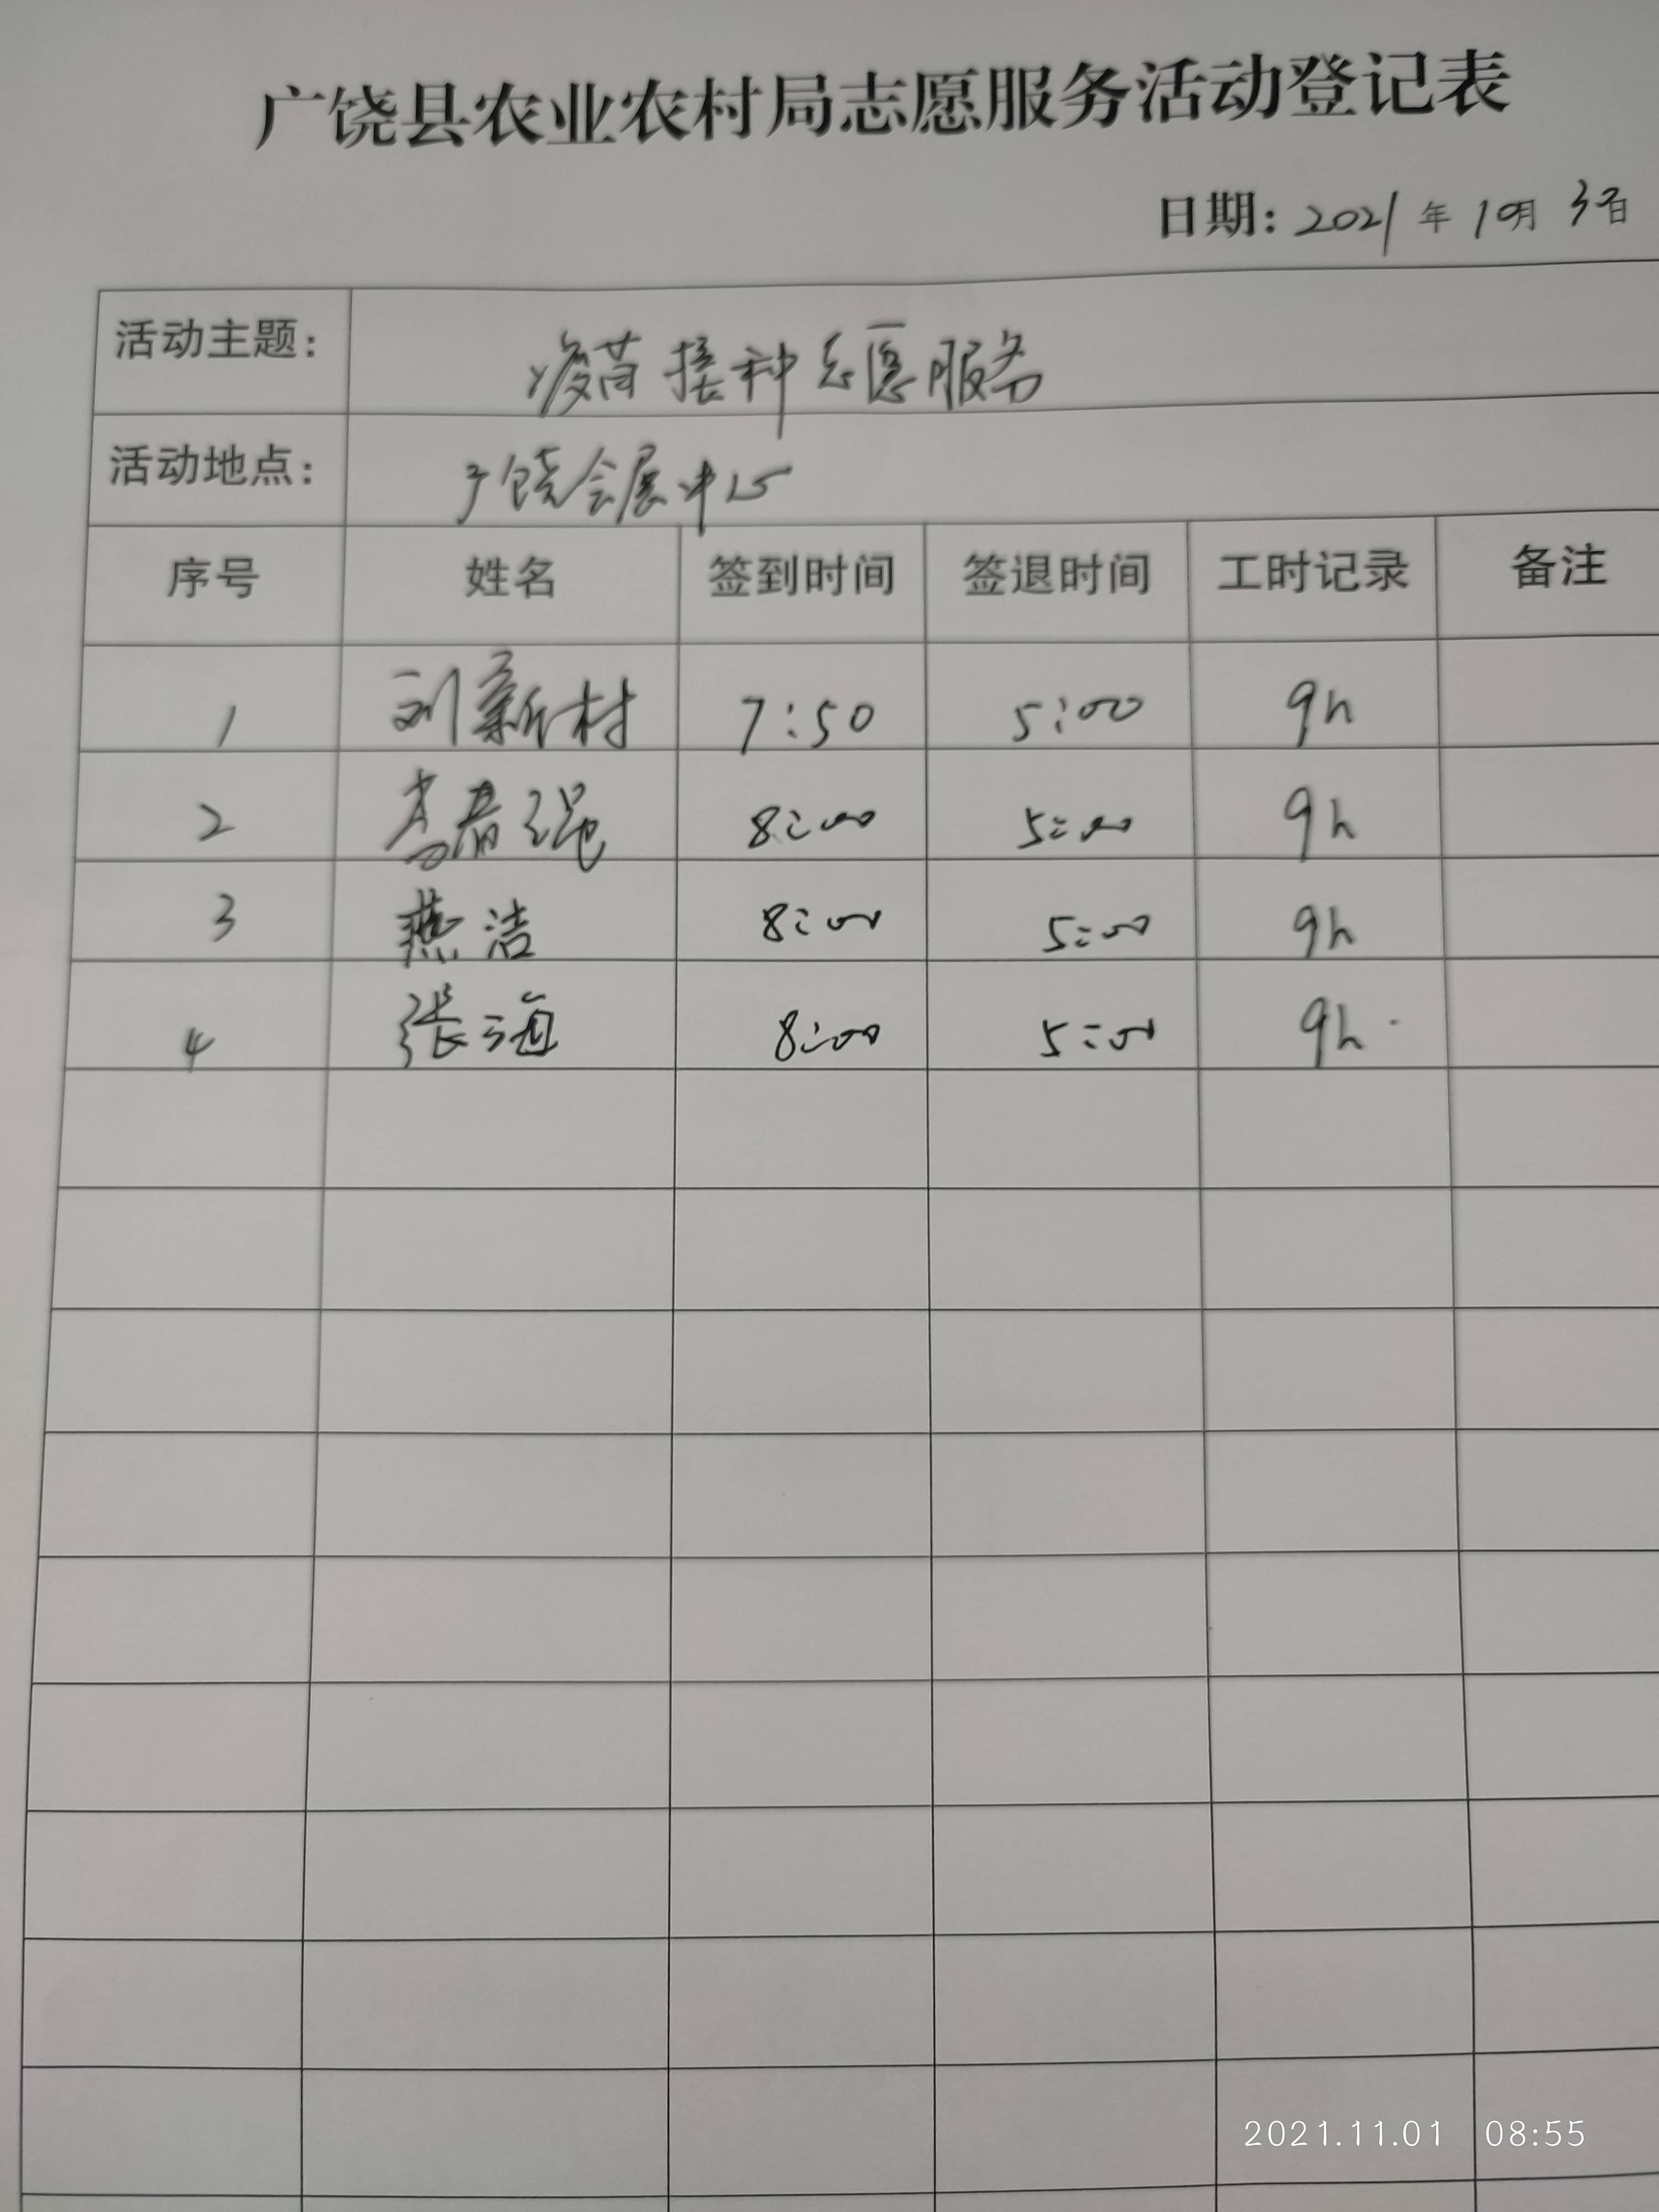 广饶县农业农村局志愿服务活动登记表
日期: 2021 年 10月 日
活动主题: 疫苗接种志愿服务
活动地点: 广饶会展中心
序号 姓名 签到时间 签退时间 工时记录 备注
1 刘新村 7:50 5:00 9h
2 8:00 5:00 9h
3 燕洁 8:00 5:00 9h
4 张海 8:00 5:00 9h
2021.11.01 08:55